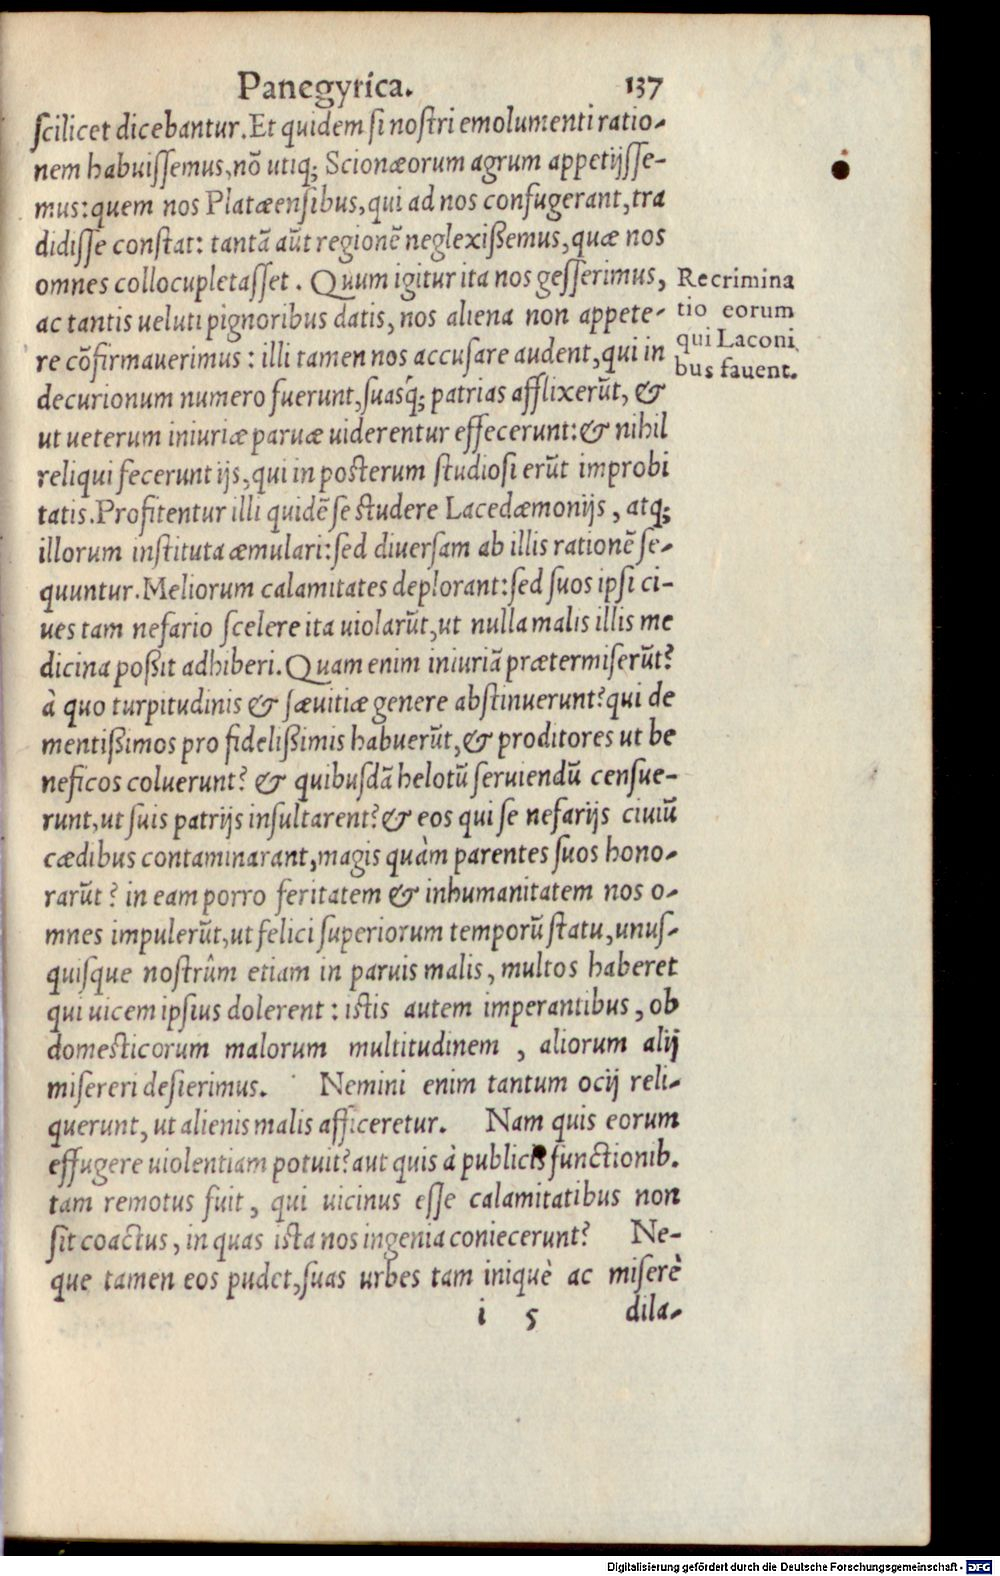 Panegyrica. 137
ſcilicet dicebantur. Et quidem ſi noſtri emolumenti ratio-
nem habuiſſemus, nõ utiq; Scionæorum agrum appetijſſe-
mus: quem nos Platæenſibus, qui ad nos confugerant, tra
didiſſe conſtat: tantã aũt regionẽ neglexißemus, quæ nos
omnes collocupletaſſet. Quum igitur ita nos geſſerimus,
ac tantis ueluti pignoribus datis, nos aliena non appete-
re cõfirmauerimus: illi tamen nos accuſare audent, qui in
decurionum numero fuerunt, ſuasq́; patrias afflixerũt, &
ut ueterum iniuriæ paruæ uiderentur effecerunt: & nihil
reliqui fecerunt ijs, qui in poſterum ſtudioſi erũt improbi
tatis. Profitentur illi quidẽ ſe ſtudere Lacedæmonijs, atq;
illorum inſtituta æmulari: ſed diuerſam ab illis rationẽ ſe-
quuntur. Meliorum calamitates deplorant: ſed ſuos ipſi ci-
ues tam nefario ſcelere ita uiolarũt, ut nulla malis illis me
dicina poßit adhiberi. Quam enim iniuriã prætermiſerũt?
à quo turpitudinis & ſæuitiæ genere abſtinuerunt? qui de
mentißimos pro fidelißimis habuerũt, & proditores ut be
neficos coluerunt? & quibuſdã helotũ ſeruiendũ cenſue-
runt, ut ſuis patrijs inſultarent? & eos qui ſe nefarijs ciuiũ
cædibus contaminarant, magis quàm parentes ſuos hono-
rarũt? in eam porro feritatem & inhumanitatem nos o-
mnes impulerũt, ut felici ſuperiorum temporũ ſtatu, unuſ-
quiſque noſtrûm etiam in paruis malis, multos haberet
qui uicem ipſius dolerent: iſtis autem imperantibus, ob
domeſticorum malorum multitudinem, aliorum alij
miſereri deſierimus. Nemini enim tantum ocij reli-
querunt, ut alienis malis afficeretur. Nam quis eorum
effugere uiolentiam potuit? aut quis à publicis functionib.
tam remotus fuit, qui uicinus eſſe calamitatibus non
ſit coactus, in quas iſta nos ingenia coniecerunt? Ne-
que tamen eos pudet, ſuas urbes tam iniquè ac miſerè
i 5 dila-
Recrimina
tio eorum
qui Laconi
bus fauent.
Digitalisierung gefördert durch die Deutsche Forschungsgemeinschaft - DFG